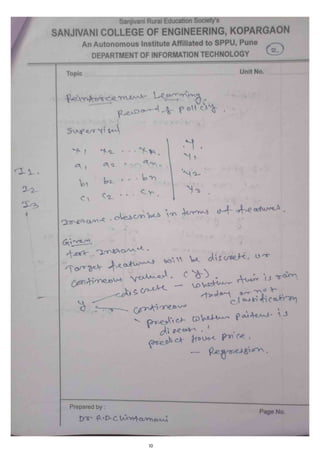 Sanjivani Rural Education Society's
SANJIVANI COLLEGE OF ENGINEERING, KOPARGAON
An Autonomous Institute Affiliated to SPPU, Pune
DEPARTMENT OF INFORMATION TECHNOLOGY
2.
Topic
Unit No.
Reinforcement Learning
Reward & policy.
Supervised
x1 x2 ... xn. y.
I1. a1 a2 ... an. y1
I2 b1 b2 ... bn y2.
I3 c1 c2 ... cn. y3
Instance describes in terms of features.
Given
test Instance.
Target features will be discrete, or
continuous valued. (y).
y discrete - whether their is rain
today or not
classification
continuous
predict whether patient is
disease.
predict house price.
- Regression.
Prepared by :
Dr. R.D. Chintamani
Page No.
10